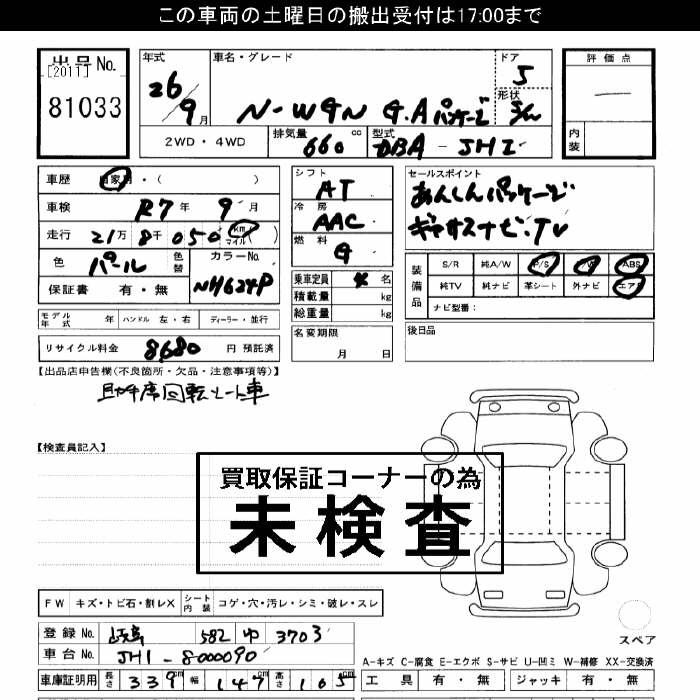 この車両の土曜日の搬出受付は17:00まで
出品No.
[2011]
81033
年式
26/9月
車名・グレード
N-WGN G.Aパッケージ
ドア
5
形状
評価点
内装
2WD・4WD
排気量 660 cc
型式 DBA-JH1
車歴 自家用・( )
車検 R7年 9月
走行 21万 8千 050 km マイル( )
色 パール 色替
カラーNo. NH624P
保証書 有・無
シフト AT
冷房 AAC
燃料 G
乗車定員 4名
積載量 kg
総重量 kg
セールスポイント
あんしんパッケージ
ギャザズナビ・TV
装備品
S/R 純A/W P/S P/W ABS
純TV 純ナビ 革シート 外ナビ エアB
ナビ型番:
モデル年式 年 ハンドル 左・右 ディーラー・並行
名変期限
月 日
後日品
リサイクル料金 8680 円 預託済
【出品店申告欄(不良箇所・欠品・注意事項等)】
助手席回転シート車
【検査員記入】
買取保証コーナーの為
未検査
FW キズ・トビ石・割レX シート内装 コゲ・穴・汚レ・シミ・破レ・スレ
登録No. 岐阜 582 ゆ 3703
車台No. JH1-8000090
車庫証明用 長さ 339cm 幅 147cm 高さ 165cm
スペア
A-キズ C-腐食 E-エクボ S-サビ U-凹ミ W-補修 XX-交換済
工具 有・無 ジャッキ 有・無